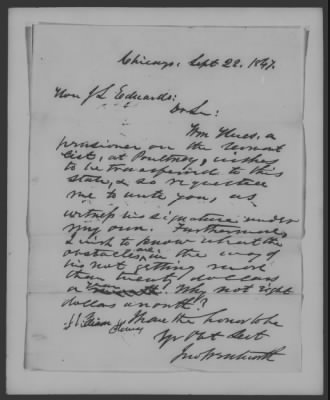 Chicago, Sept 22. 1847.
Hon J L Edwards:
Dr Sir:
Wm Hues, a
pensioner on the Vermont
list, at Poultney, wishes
to be transferred to this
state, & so requested
me to write you, as
witness his signature under
my own. Furthermore,
I wish to know what the
obstacles are in the way of
his not getting more
than twenty dollars
a year? Why not eight
dollars a month?
I have the honor to be
Yr Obt Svt
Jno Wentworth